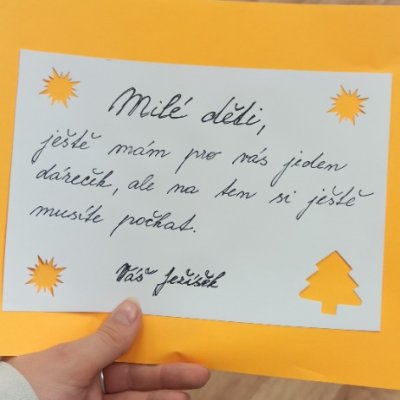 Milé děti,
ještě mám pro vás jeden
dáreček, ale na ten si ještě
musíte počkat.
Váš Ježíšek